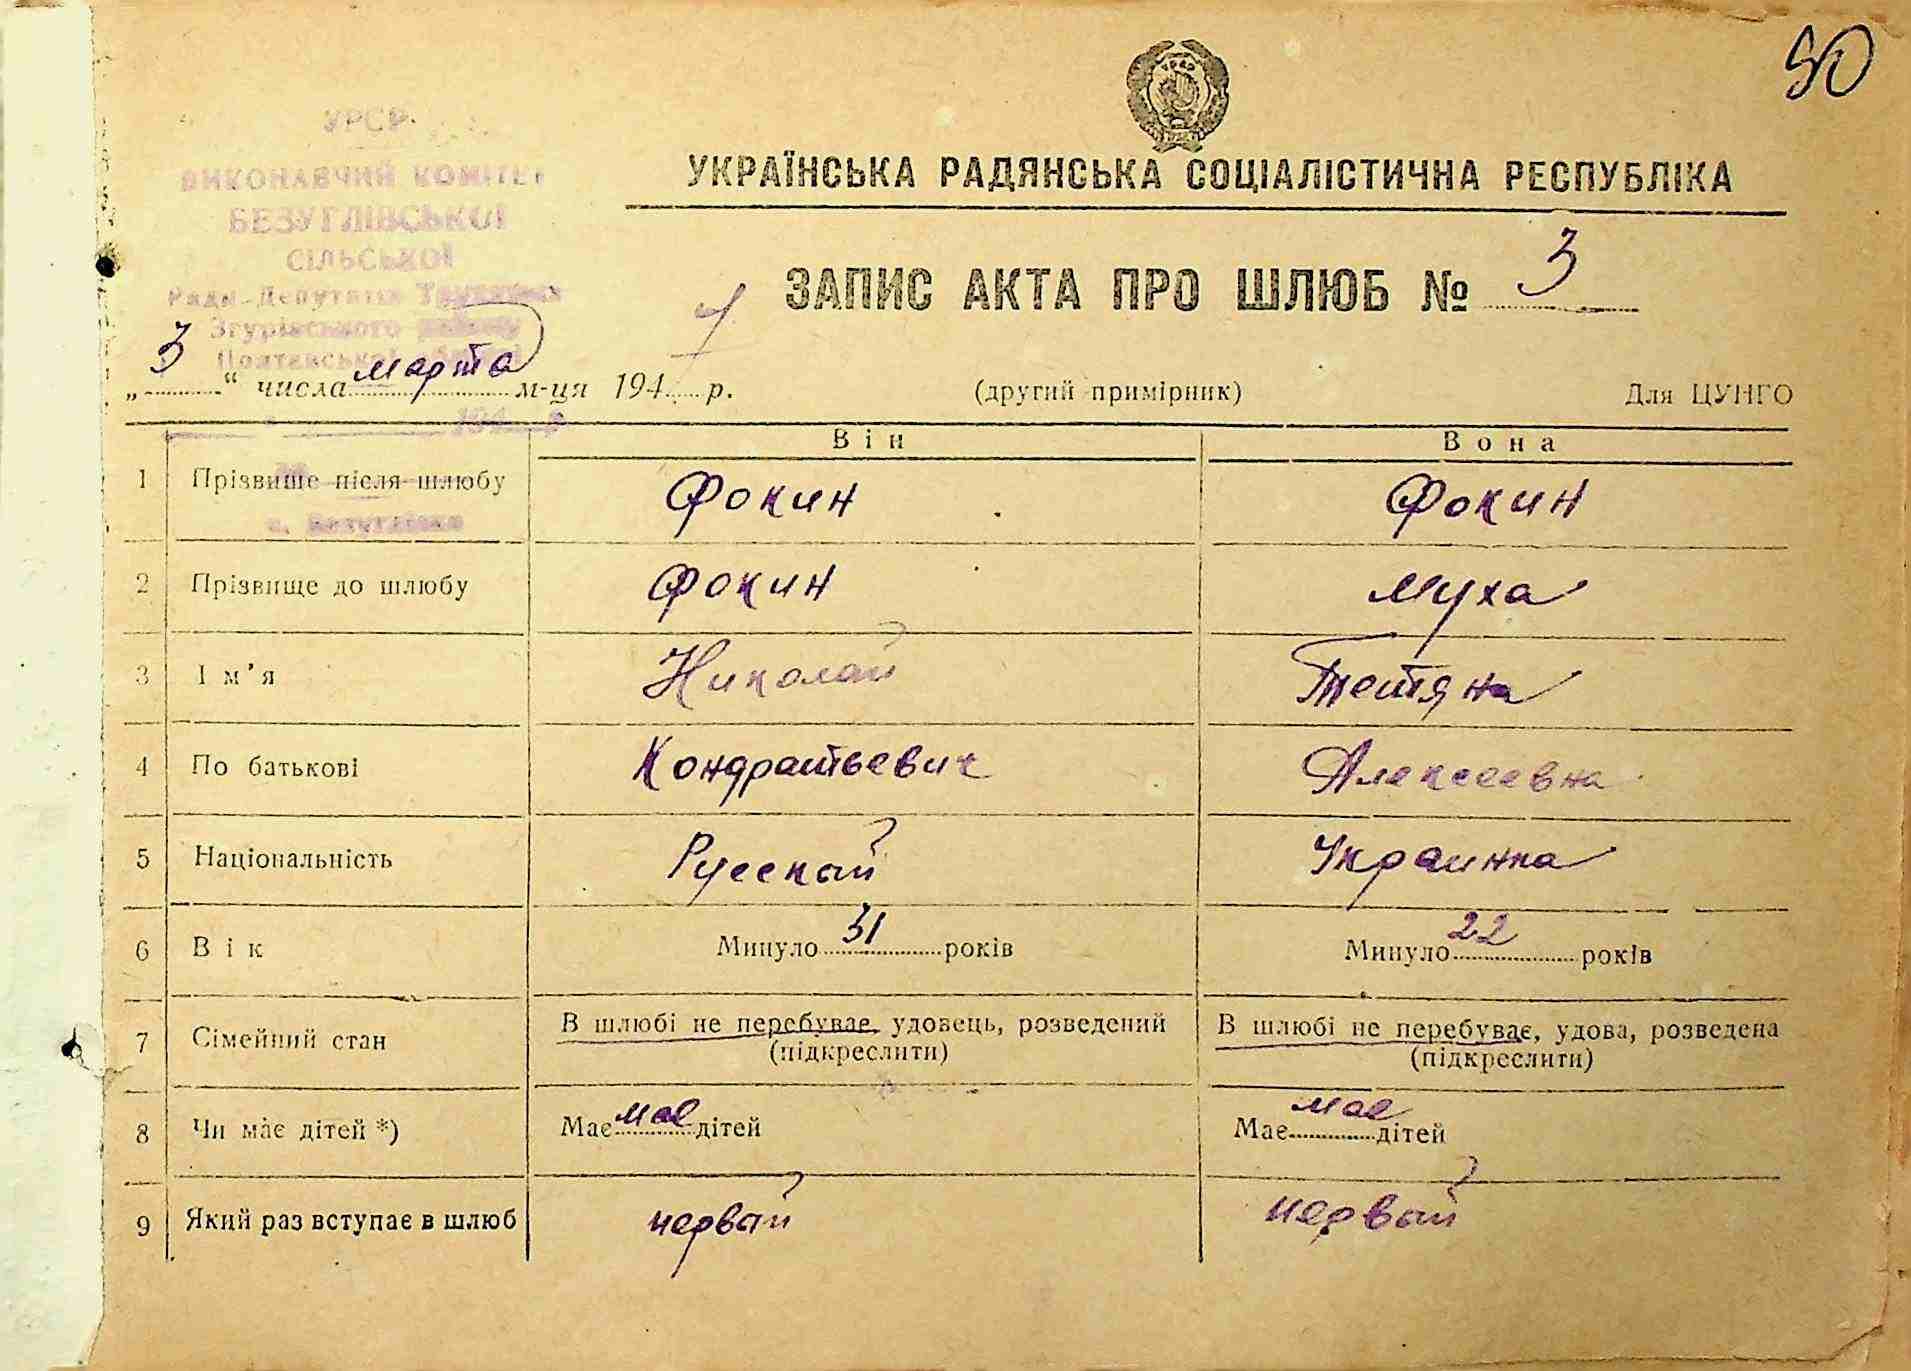 50
УРСР
ВИКОНАВЧИЙ КОМІТЕТ
БЕЗУГЛІВСЬКОЇ
СІЛЬСЬКОЇ
Ради Депутатів Трудящих
Згурівського району
Полтавської області
УКРАЇНСЬКА РАДЯНСЬКА СОЦІАЛІСТИЧНА РЕСПУБЛІКА
ЗАПИС АКТА ПРО ШЛЮБ № 3
„3“ числа марта м-ця 1947 р. (другий примірник) Для ЦУНГО
194 р
Він Вона
1 Прізвище після шлюбу Фокин Фокин
с. Безуглівка
2 Прізвище до шлюбу Фокин Муха
3 Ім’я Николай Тетяна
4 По батькові Кондратьевич Алексеевна
5 Національність Русский Украинка
6 Вік Минуло 31 років Минуло 22 років
7 Сімейний стан В шлюбі не перебуває, удовець, розведений В шлюбі не перебуває, удова, розведена
(підкреслити) (підкреслити)
8 Чи має дітей *) Має має дітей Має має дітей
9 Який раз вступає в шлюб первый первый